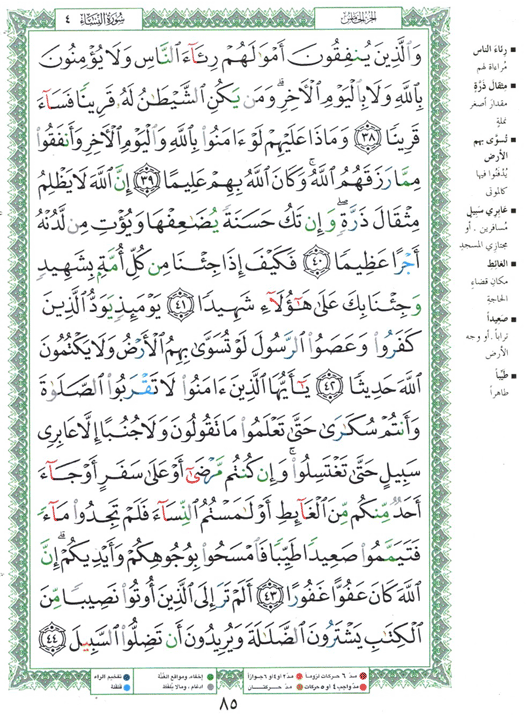 سُورَةُ النِّسَاءِ ٤
الجزء الخامس
وَٱلَّذِينَ يُنفِقُونَ أَمْوَٰلَهُمْ رِئَآءَ ٱلنَّاسِ وَلَا يُؤْمِنُونَ
بِٱللَّهِ وَلَا بِٱلْيَوْمِ ٱلْأَخِرِ ۗ وَمَن يَكُنِ ٱلشَّيْطَٰنُ لَهُۥ قَرِينًا فَسَآءَ
قَرِينًا ﴿٣٨﴾ وَمَاذَا عَلَيْهِمْ لَوْ ءَامَنُوا۟ بِٱللَّهِ وَٱلْيَوْمِ ٱلْأَخِرِ وَأَنفَقُوا۟
مِمَّا رَزَقَهُمُ ٱللَّهُ ۚ وَكَانَ ٱللَّهُ بِهِمْ عَلِيمًا ﴿٣٩﴾ إِنَّ ٱللَّهَ لَا يَظْلِمُ
مِثْقَالَ ذَرَّةٍ ۖ وَإِن تَكُ حَسَنَةً يُضَٰعِفْهَا وَيُؤْتِ مِن لَّدُنْهُ
أَجْرًا عَظِيمًا ﴿٤٠﴾ فَكَيْفَ إِذَا جِئْنَا مِن كُلِّ أُمَّةٍۭ بِشَهِيدٍ
وَجِئْنَا بِكَ عَلَىٰ هَٰٓؤُلَآءِ شَهِيدًا ﴿٤١﴾ يَوْمَئِذٍ يَوَدُّ ٱلَّذِينَ
كَفَرُوا۟ وَعَصَوُا۟ ٱلرَّسُولَ لَوْ تُسَوَّىٰ بِهِمُ ٱلْأَرْضُ وَلَا يَكْتُمُونَ
ٱللَّهَ حَدِيثًا ﴿٤٢﴾ يَٰٓأَيُّهَا ٱلَّذِينَ ءَامَنُوا۟ لَا تَقْرَبُوا۟ ٱلصَّلَوٰةَ
وَأَنتُمْ سُكَٰرَىٰ حَتَّىٰ تَعْلَمُوا۟ مَا تَقُولُونَ وَلَا جُنُبًا إِلَّا عَابِرِى
سَبِيلٍ حَتَّىٰ تَغْتَسِلُوا۟ ۚ وَإِن كُنتُم مَّرْضَىٰٓ أَوْ عَلَىٰ سَفَرٍ أَوْ جَآءَ
أَحَدٌ مِّنكُم مِّنَ ٱلْغَآئِطِ أَوْ لَٰمَسْتُمُ ٱلنِّسَآءَ فَلَمْ تَجِدُوا۟ مَآءً
فَتَيَمَّمُوا۟ صَعِيدًا طَيِّبًا فَٱمْسَحُوا۟ بِوُجُوهِكُمْ وَأَيْدِيكُمْ ۗ إِنَّ
ٱللَّهَ كَانَ عَفُوًّا غَفُورًا ﴿٤٣﴾ أَلَمْ تَرَ إِلَى ٱلَّذِينَ أُوتُوا۟ نَصِيبًا مِّنَ
ٱلْكِتَٰبِ يَشْتَرُونَ ٱلضَّلَٰلَةَ وَيُرِيدُونَ أَن تَضِلُّوا۟ ٱلسَّبِيلَ ﴿٤٤﴾
رِئَاءَ الناس
مُراءاة لهم
مِثقالَ ذَرَّةٍ
مقدار أصغر
نملة
تُسوّى بهم
الأرض
يُدفنوا فيها
كالموتى
عَابِري سَبِيل
مُسافرين . أو
مجتازي المسجد
الغائط
مكان قضاء
الحاجة
صَعِيداً
تراباً . أو وجه
الأرض
طَيِّباً
طاهراً
مد ٦ حركات لزوماً
مد ٢ أو ٤ أو ٦ جوازاً
إخفاء ومواقع الغنّة
تفخيم الراء
مد واجب ٤ أو ٥ حركات
مد حركتان
إدغام ، وما لا يلفظ
قلقلة
٨٥